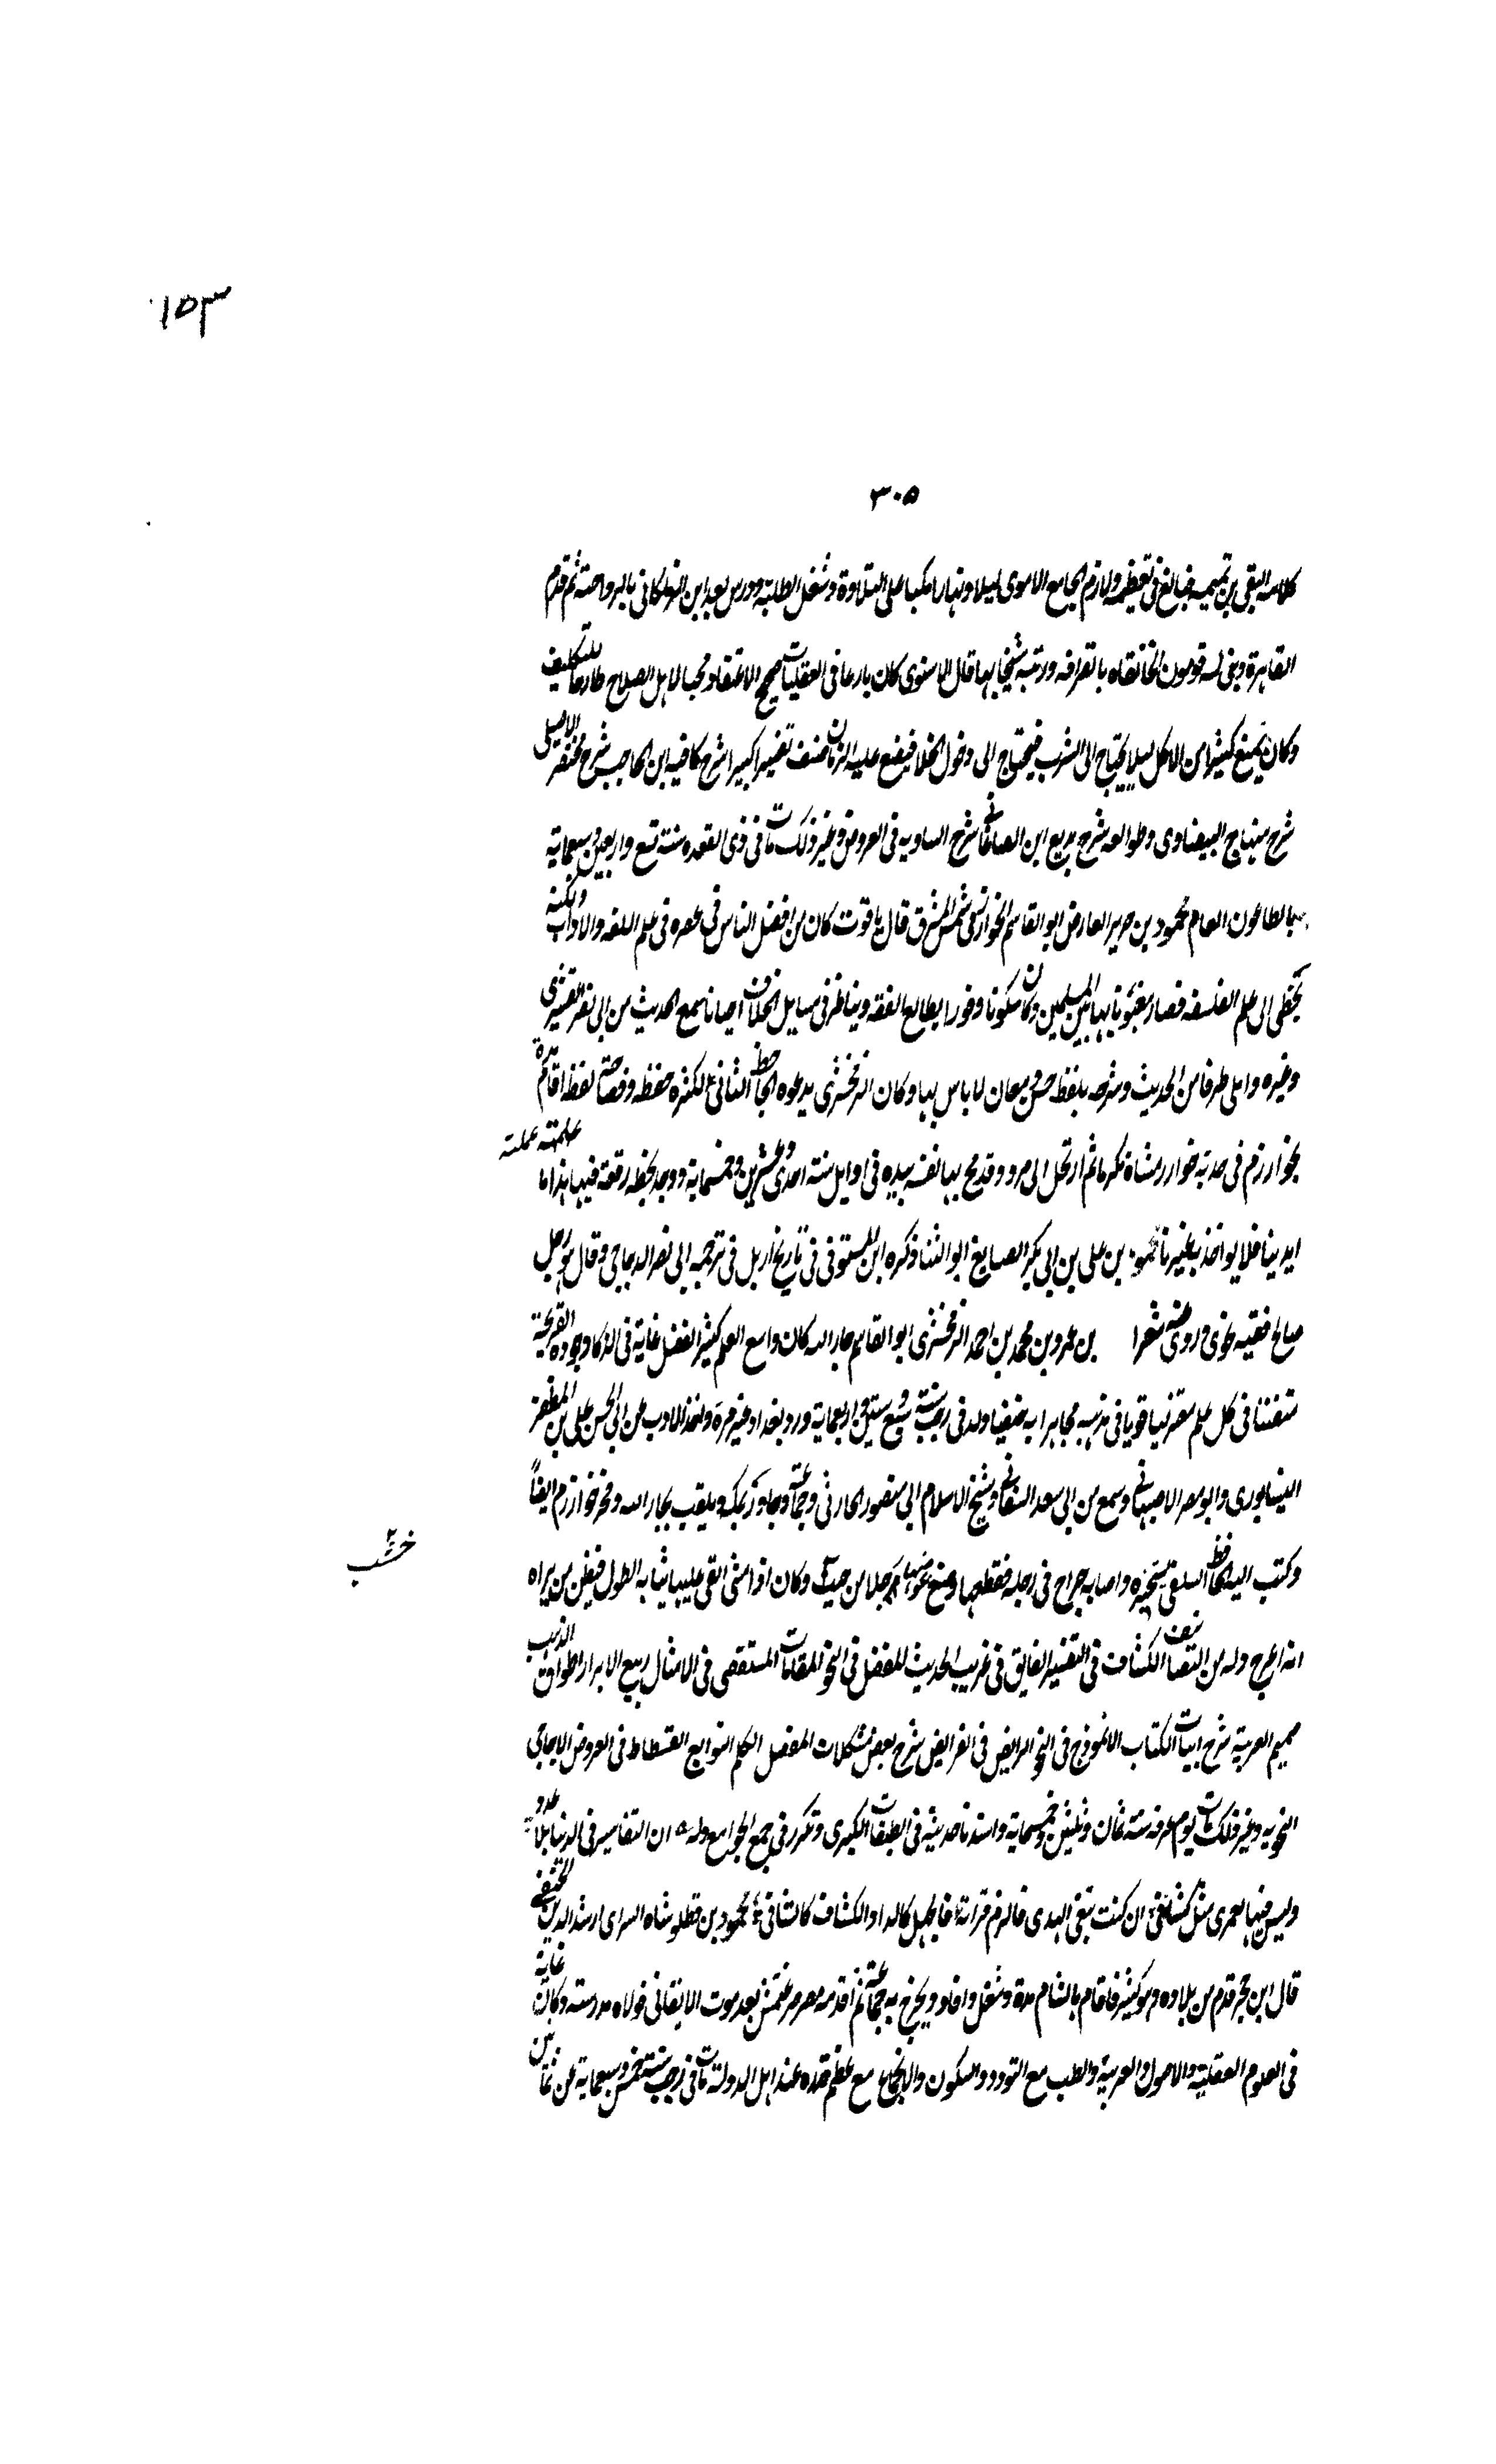 ١٥٣
٣٠٥
كلامه التقى بن تيميه فبالغ فى تعظيمه ولازم الجامع الاموى ليلا ونهارا مكبا على التلاوة وشغل الطلبة ودرس بعد ابن الزملكانى بالرواحية ثم قدم
القاهرة وبنى له قوصون الخانقاه بالقرافه ورتبه شيخا بها قال الاسنوى كان بارعا فى العقليات صحيح الاعتقاد محبا لاهل الصلاح طارحا للتكليف
وكان يمتنع كثيرا من الاكل ليلا يحتاج الى الشرب فيحتاج الى دخول الخلا فيضع عليه الزمان صنف تفسيرا كبيرا شرح كافيه ابن الحاجب شرح مختصر الاصلى
شرح منهاج البيضاوى وطوالعه شرح بديع ابن الساعاتى شرح الساويه فى العروض وغير ذلك مات فى ذى القعده سنة تسع واربعين وسبعماية
بالطاعون العام محمود بن جرير العارض ابو القاسم الخوارزمى شمس المشرق قال ياقوت كان من افضل الناس فى عصره فى علم اللغه والاداب ولكنه
تخطى الى علم الفلسفه فصار مفتونا بها بين المسلمين وكان سكونا وقورا يطالع الفقه ويناظر فى مسايل الخلاف احيانا سمع الحديث من ابى نصر القشيرى
وغيره واملى طرفا من الحديث وشرحه بلفظ حسن ومعان لا باس بها وكان الزمخشرى يدعوه الجاحظ الثانى لكثرة حفظه وفصاحة لفظه اقام مدة
بخوارزم فى خدمة خوارزمشاة مكرما ثم ارتحل الى مرو وقد ذبح بها نفسه بيده فى اوايل سنة احدى وعشرين وخمسماية ووجد بخطه رقعة فيها هذا ما
عملته
ايدينا فلا يواخذ به غيرنا محمود بن على بن ابى بكر الصايغ ابو الثنا ذكره ابن المستوفى فى تاريخ اربل فى ترجمه ابى نصر الدجاجى وقال هو رجل
صالح فقيه نحوى وروى عنه شعرا بن عمرو بن محمد بن احمد الزمخشرى ابو القاسم جار الله كان واسع العلم كثير الفضل غاية فى الذكا وجوده القريحة
متفننا فى كل علم معتزليا قويا فى مذهبه مجاهرا به حنفيا ولد فى رجب سنة سبع وتسعين واربعماية ورد بغداد غير مرة واخذ الادب عن ابى الحسن على بن المظفر
النيسابورى وابو مضر الاصبهانى وسمع من ابى سعد الشقانى وشيخ الاسلام ابى منصور الحارثى وجماعة وجاور بمكه ويلقب بجار الله وفخر خوارزم ايضا
وكتب اليه الحافظ السلفى يستجيزه واصابه خراج فى رجله فقطعها وصنع عوضها رجلا من خشب وكان اذا مشى القى عليها ثيابه الطول فيظن من يراه
خشب
انه اعرج وله من التصانيف الكشاف فى التفسير الفايق فى غريب الحديث المفصل فى النحو المقامات المستقصى فى الامثال ربيع الابرار اطواق الذهب
صميم العربية شرح ابيات الكتاب الانموذج فى النحو الرايض فى الفرايض شرح بعض مشكلات المفصل الكلم النوابغ القسطاط فى العروض الاحاجى
النحويه وغير ذلك مات يوم عرفه سنة ثمان وثلثين وخمسماية واسندنا حديثه فى الطبقات الكبرى وتكرر فى جمع الجوامع وله ان التفاسير فى الدنيا بلا عدد
وليس فيها لعمرى مثل كشافى ان كنت تبغى الهدى فالزم قراءته فالجهل كالدا والكشاف كالشافى محمود بن قطلوشاه السراى ارشد الدين الحنفى
قال ابن حجر قدم من بلاده وهو كبير فاقام بالشام مدة وشغل وافاد وتخرج به جماعة ثم اقدمه مصر صرغتمش بعد موت الاتقانى فولاه مدرسته وكان غاية
فى العلوم العقلية والاصول والعربية والطب مع التودد والسكون والانجماع مع عظم قدره عند اهل الدولة مات فى رجب سنة خمس وسبعماية عن ثمانين